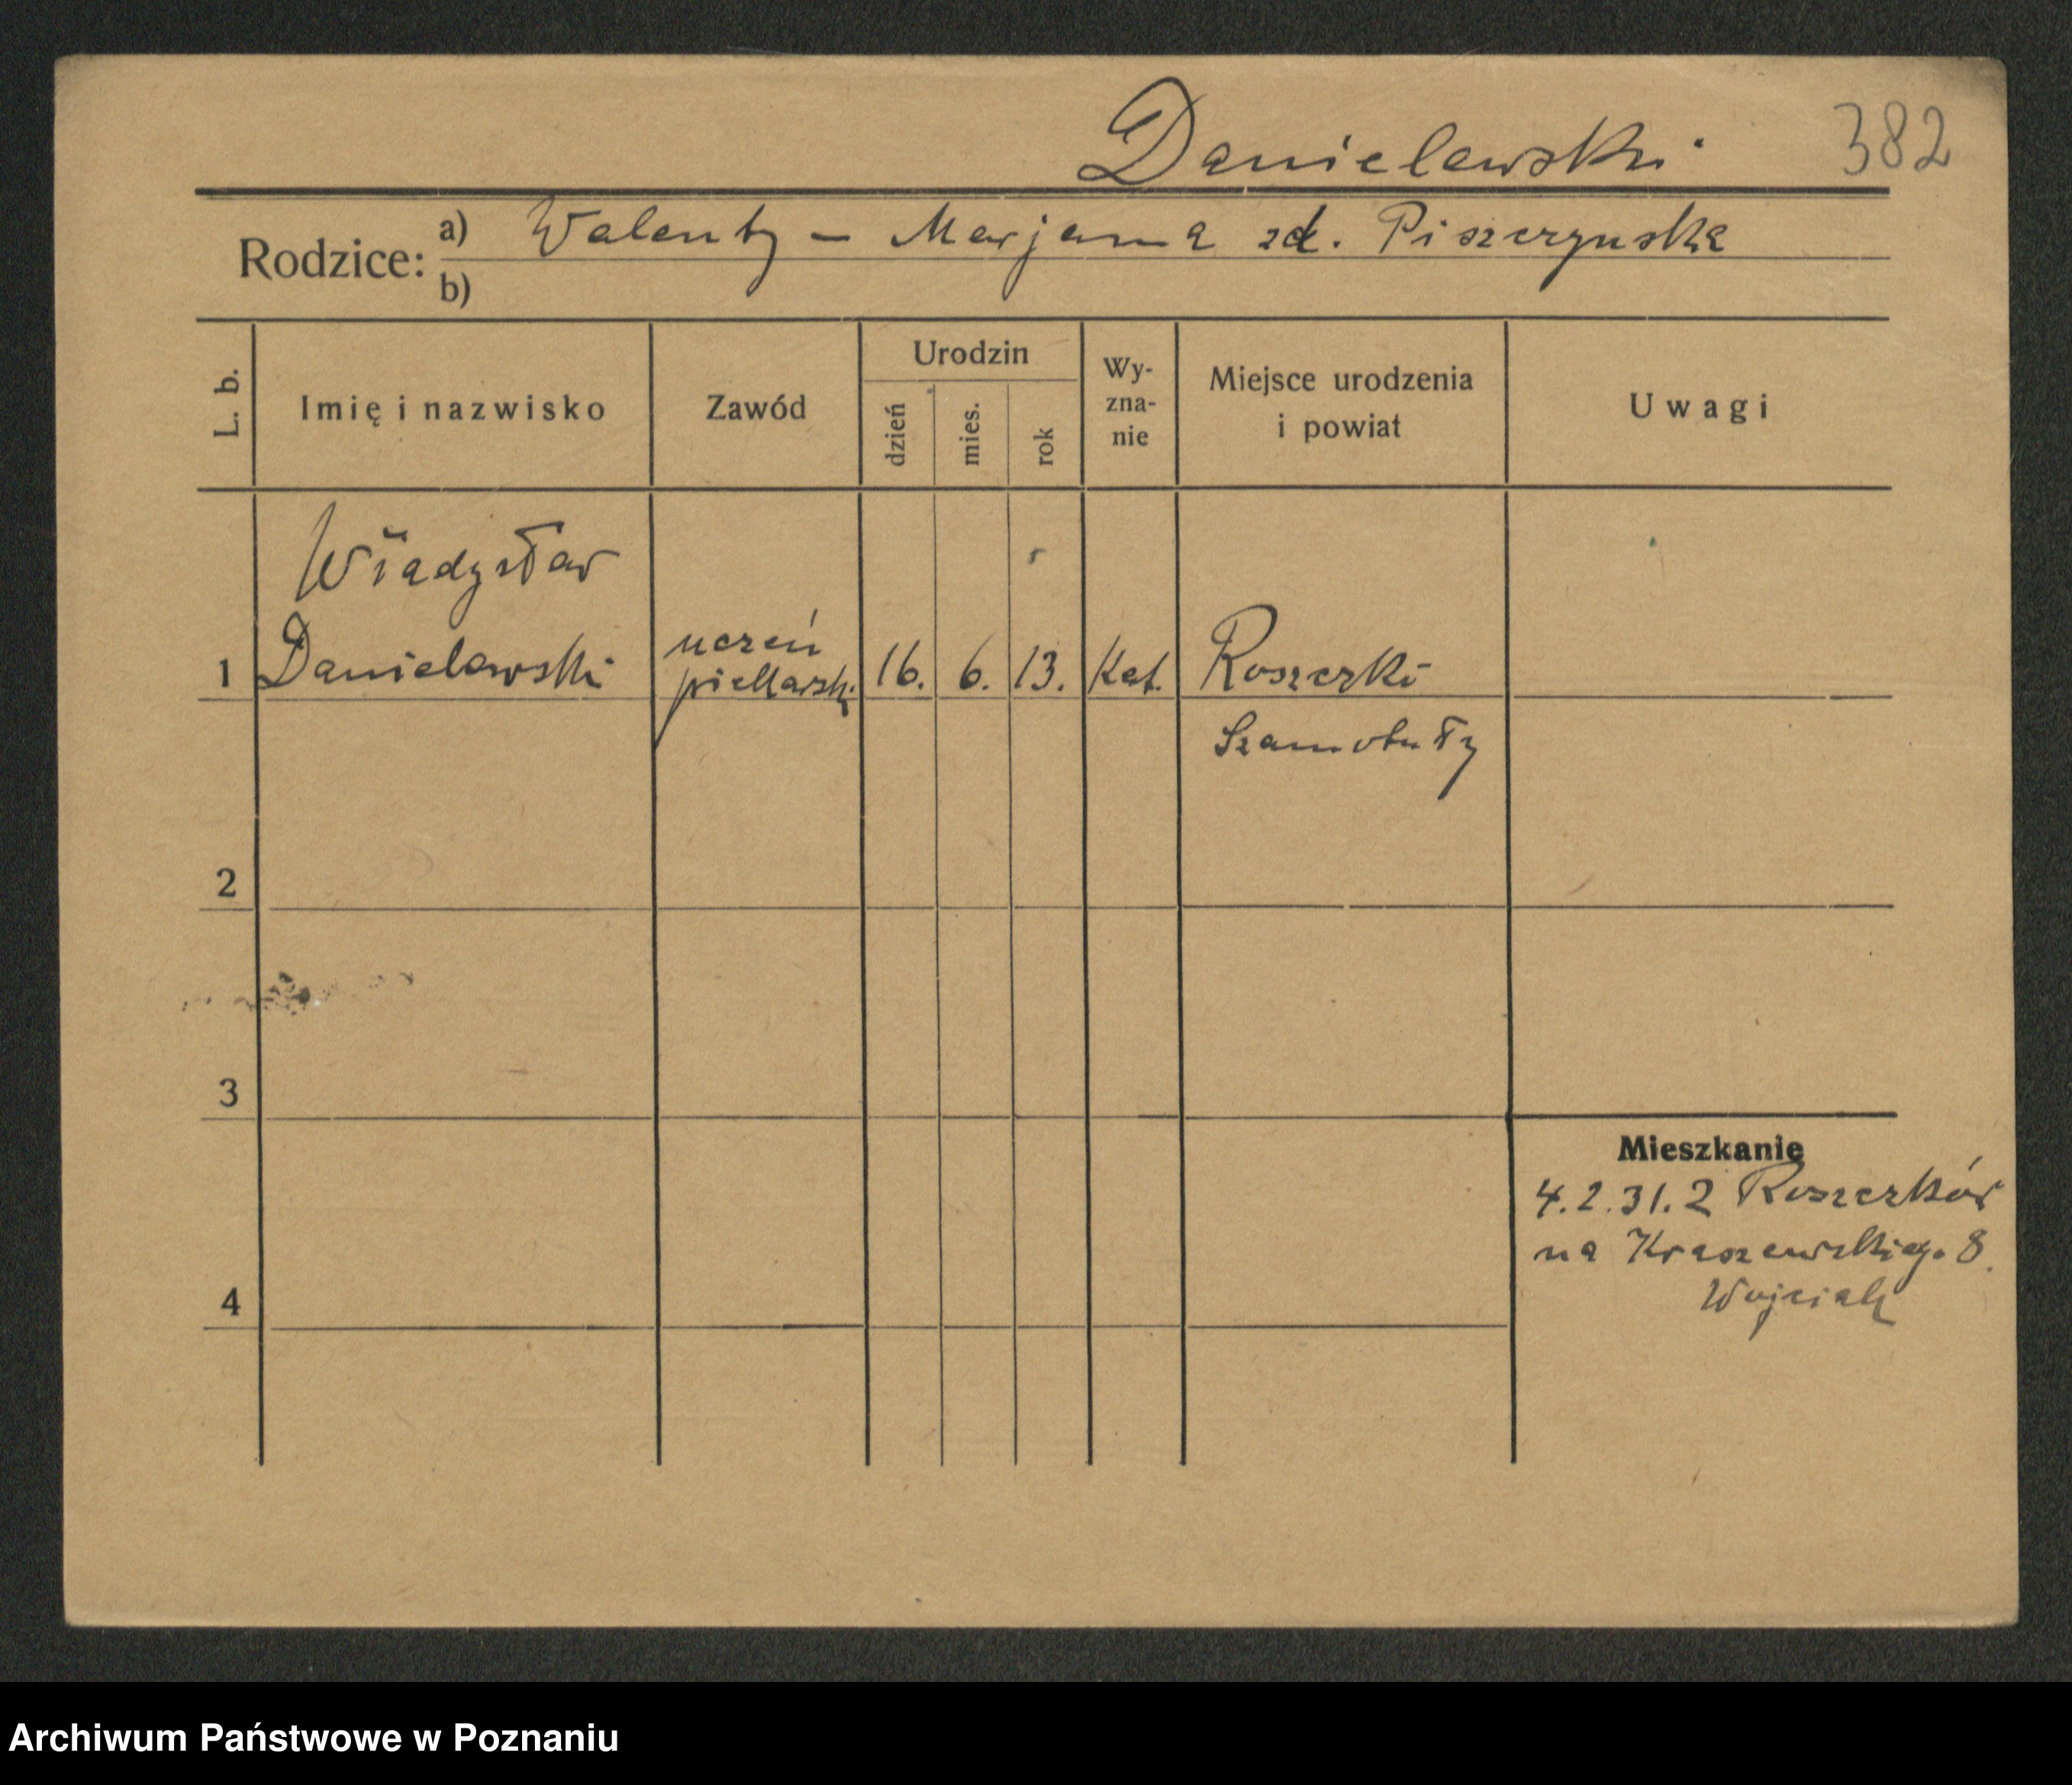 Danielewski
382
Rodzice: a) Walenty – Marjanna zd. Piszczyńska
b)
L. b.
Imię i nazwisko
Zawód
Urodzin
dzień
mies.
rok
Wy-
zna-
nie
Miejsce urodzenia
i powiat
Uwagi
Władysław
1 Danielewski uczeń piekarski 16. 6. 13. Kat. Roszczki
Szamotuły
2
3
4
Mieszkanie
4.2.31. z Roszczków
na Kraszewskiego 8.
Wojciak
Archiwum Państwowe w Poznaniu